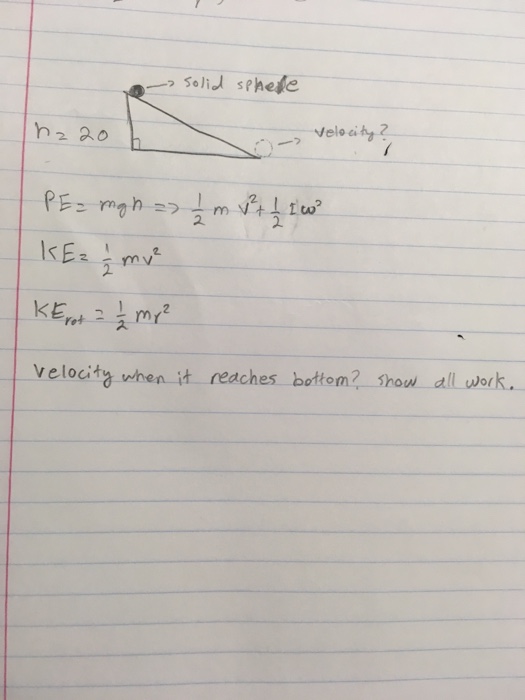 → solid sphere
h = 20
→ velocity?
PE = mgh => 1/2 m v² + 1/2 I ω²
KE = 1/2 mv²
KE rot = 1/2 mr²
Velocity when it reaches bottom? show all work.